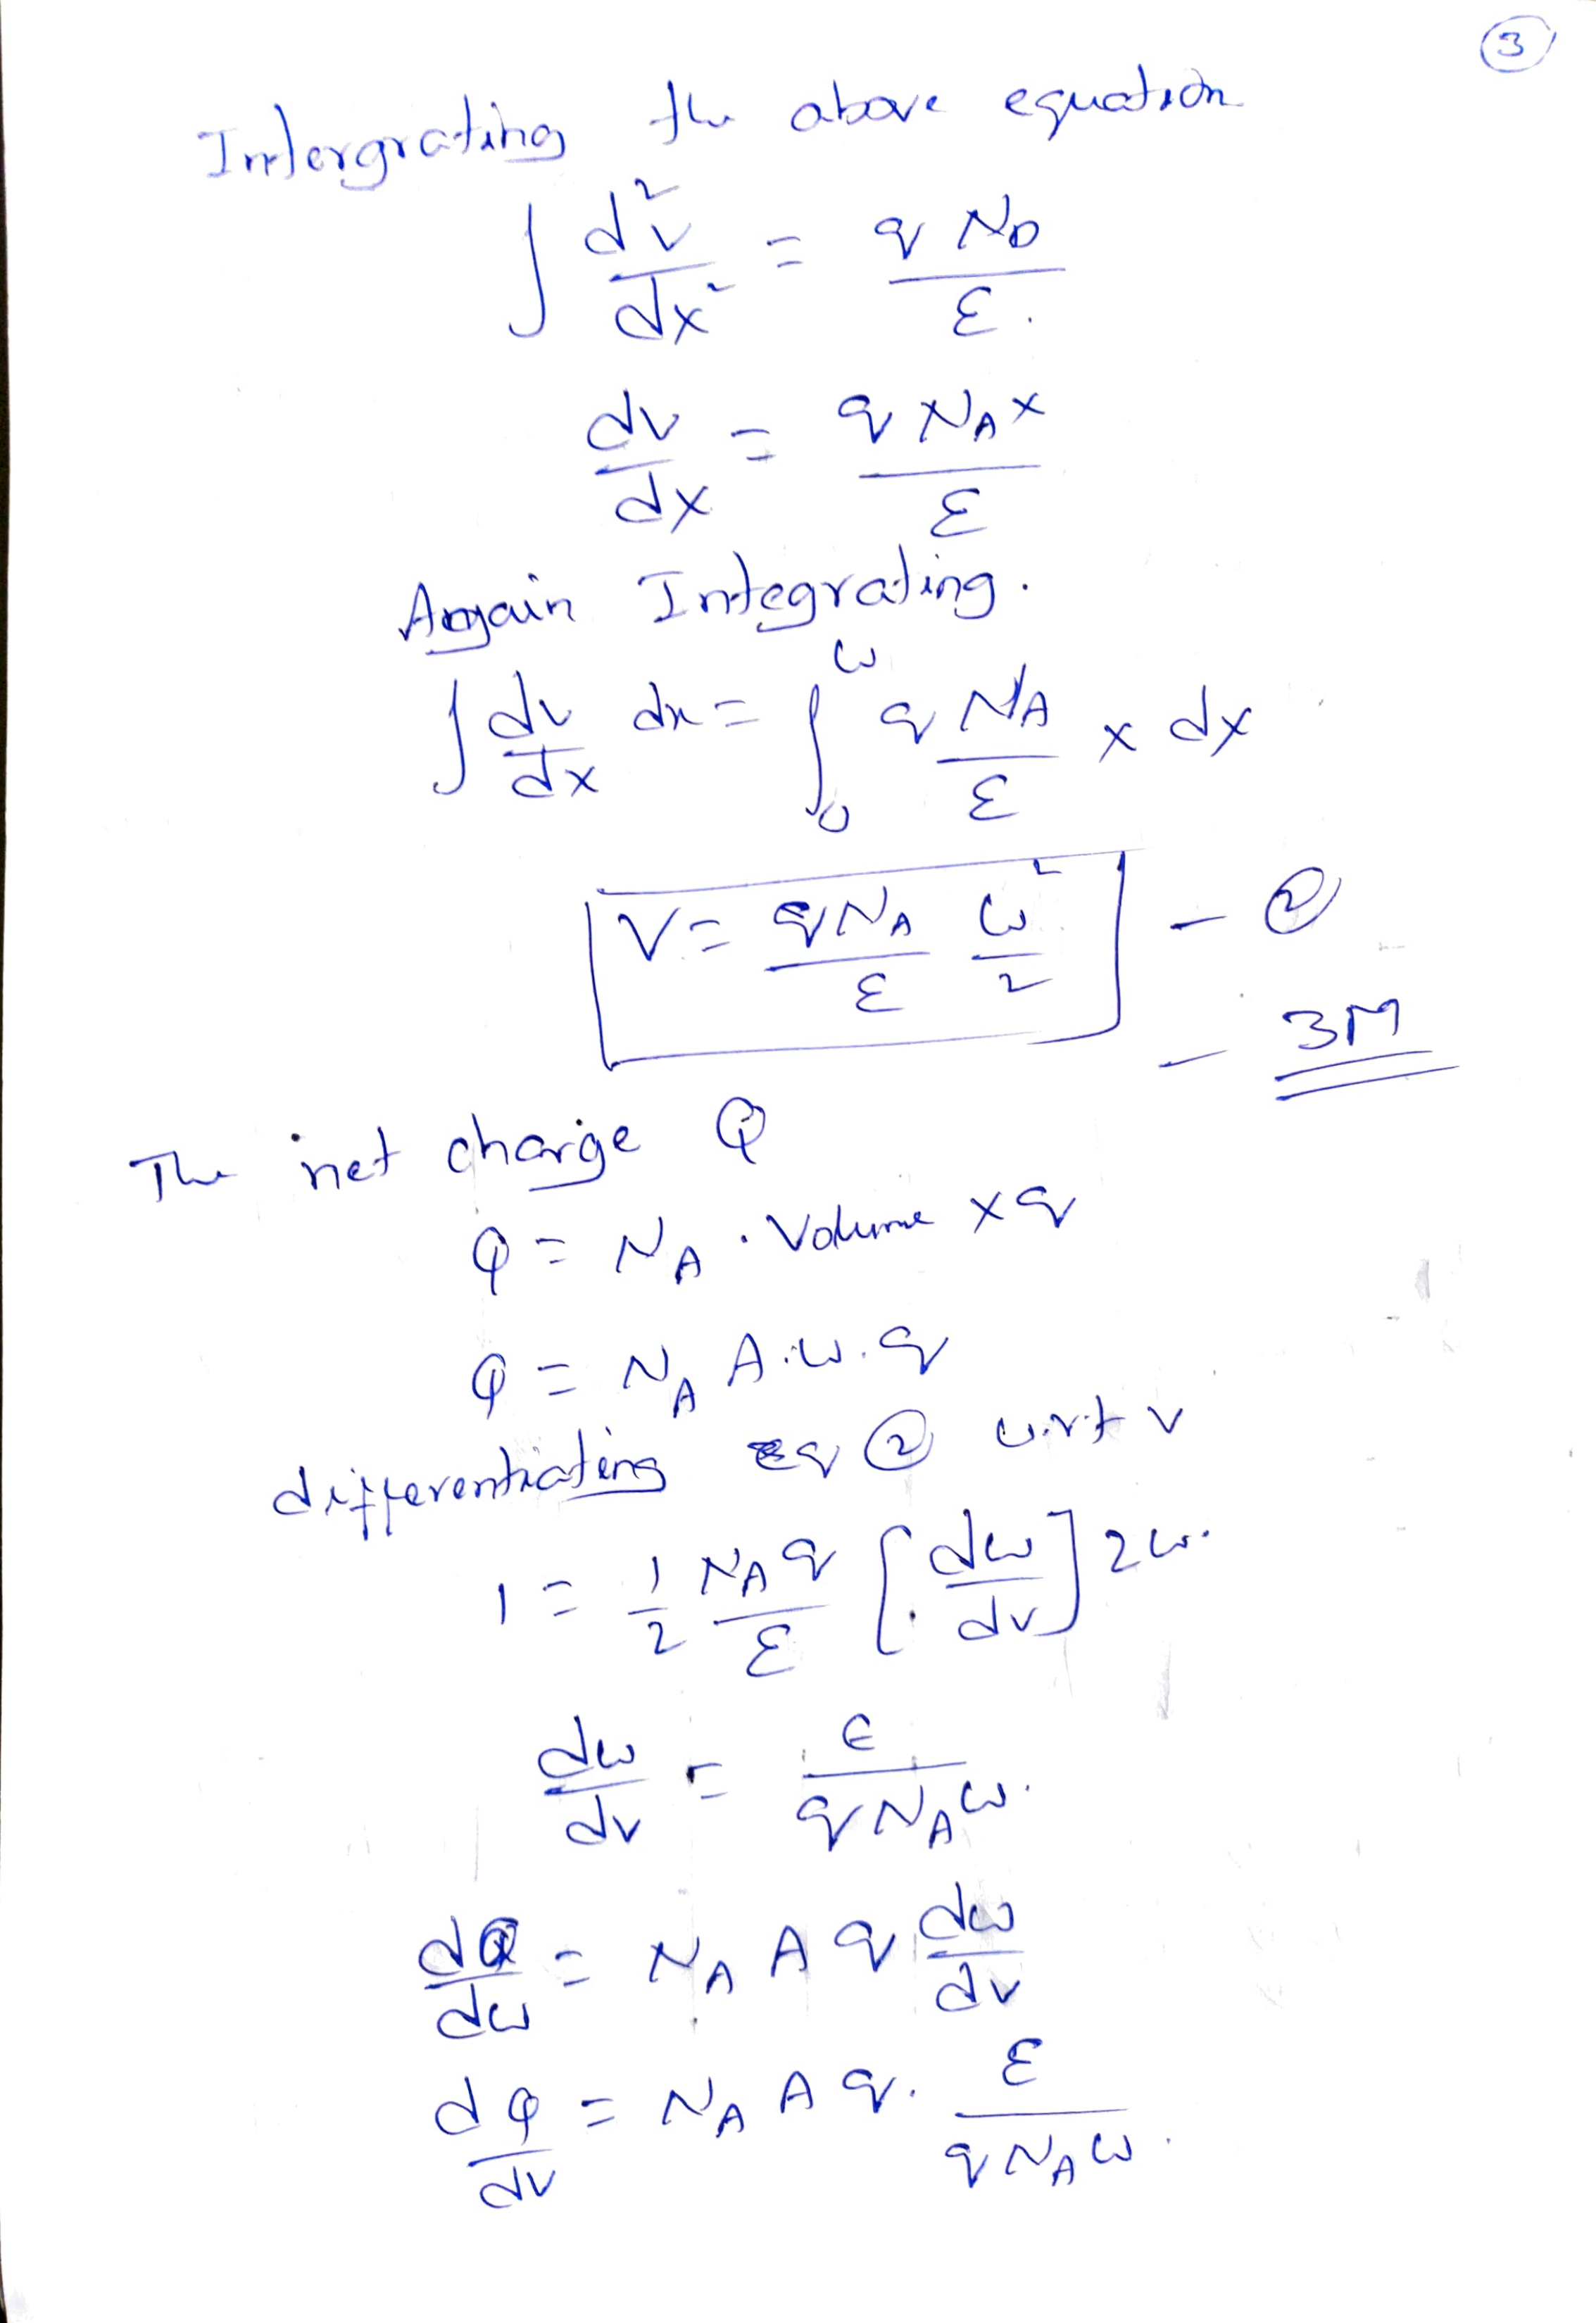 3
Intergrating the above equation
∫ d²v/dx² = q N_D / ε.
dv/dx = q N_A x / ε
Again Integrating.
∫ dv/dx dx = ∫₀^ω q N_A / ε x dx
V = qN_A/ε ω²/2 - ②
- 3M
The net charge Q
Q = N_A . Volume × q
Q = N_A A.ω.q
differentiating eq ② w.r.t v
1 = 1/2 N_A q/ε [dω/dv] 2ω.
dω/dv = ε / qN_Aω.
dQ/dω = N_A A q dω/dv
dQ/dv = N_A A q. ε / qN_Aω.